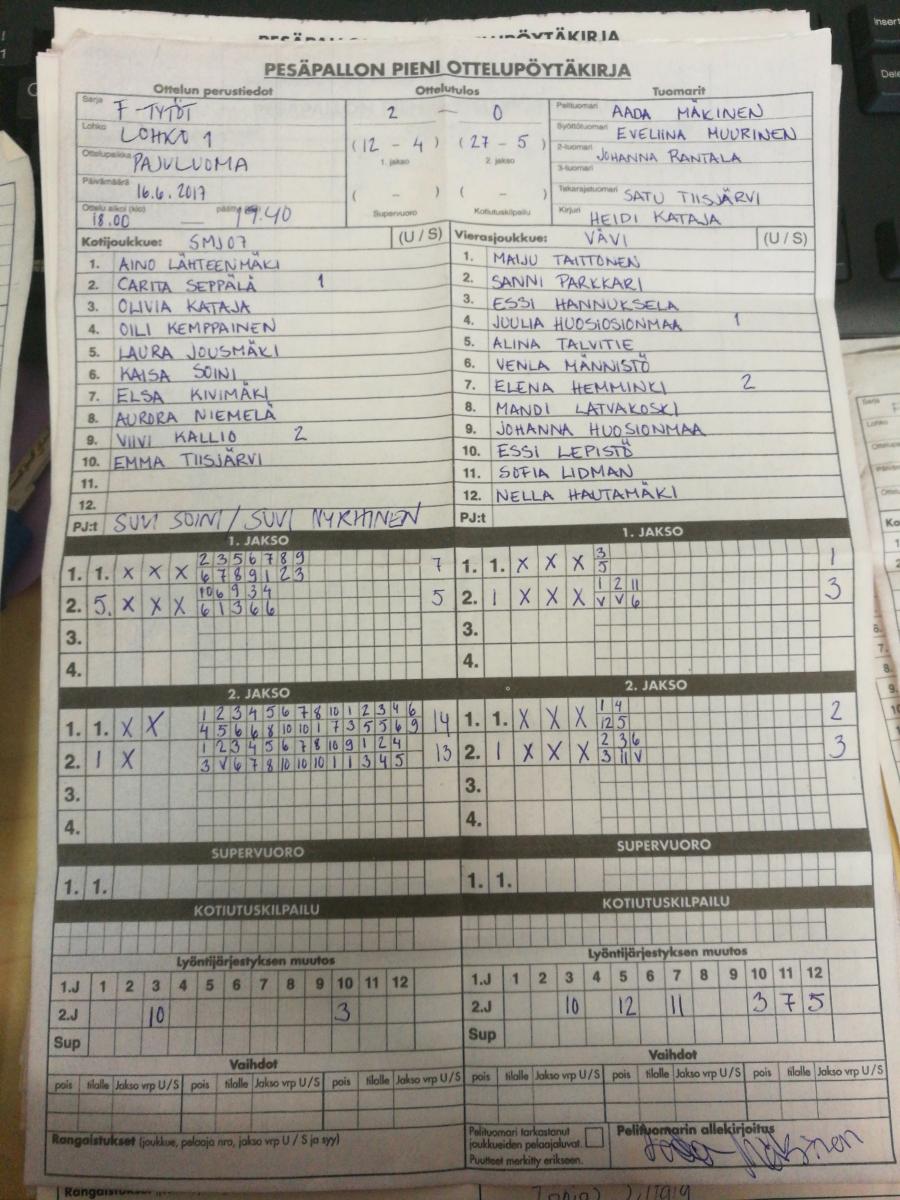 PESÄPALLON PIENI OTTELUPÖYTÄKIRJA
Ottelun perustiedot Ottelutulos Tuomarit
Sarja F-TYTÖT
Lohko LOHKO 1
Ottelupaikka PAJULUOMA
Päivämäärä 16.6.2017
Ottelu alkoi (klo) 18.00 — 19.40
2 — 0
(12 - 4) (27 - 5)
1. jakso 2. jakso
( - ) ( - )
Supervuoro Kotiutuskilpailu
Pelituomari AADA MÄKINEN
Syöttötuomari EVELIINA MUURINEN
2-tuomari JOHANNA RANTALA
3-tuomari
Takarajatuomari SATU TIISJÄRVI
Kirjuri HEIDI KATAJA
Kotijoukkue: SMJ07 (U / S)
1. AINO LÄHTEENMÄKI
2. CARITA SEPPÄLÄ 1
3. OLIVIA KATAJA
4. OILI KEMPPAINEN
5. LAURA JOUSMÄKI
6. KAISA SOINI
7. ELSA KIVIMÄKI
8. AURORA NIEMELÄ
9. VIIVI KALLIO 2
10. EMMA TIISJÄRVI
11.
12.
PJ:t SUVI SOINI / SUVI NYRHINEN
Vierasjoukkue: VÄVI (U / S)
1. MAIJU TAITTONEN
2. SANNI PARKKARI
3. ESSI HANNUKSELA
4. JUULIA HUOSIOSIONMAA 1
5. ALINA TALVITIE
6. VENLA MÄNNISTÖ
7. ELENA HEMMINKI 2
8. MANDI LATVAKOSKI
9. JOHANNA HUOSIONMAA
10. ESSI LEPISTÖ
11. SOFIA LIDMAN
12. NELLA HAUTAMÄKI
PJ:t
1. JAKSO
1. 1. X X X 2 3 5 6 7 8 9 7
6 7 8 9 1 2 3
2. 5. X X X 10 6 9 3 4 5
6 1 3 6 6
3.
4.
1. JAKSO
1. 1. X X X 3 1
5
2. 1 X X X 1 2 11 3
V V 6
3.
4.
2. JAKSO
1. 1. X X 1 2 3 4 5 6 7 8 10 1 2 3 4 6 14
4 5 6 6 8 10 10 1 7 3 5 5 6 9
2. 1 X 1 2 3 4 5 6 7 8 10 9 1 2 4 13
3 V 6 7 8 10 10 10 1 1 3 4 5
3.
4.
2. JAKSO
1. 1. X X X 1 4 2
12 5
2. 1 X X X 2 3 6 3
3 11 V
3.
4.
SUPERVUORO SUPERVUORO
1. 1. 1. 1.
KOTIUTUSKILPAILU KOTIUTUSKILPAILU
Lyöntijärjestyksen muutos
1.J 1 2 3 4 5 6 7 8 9 10 11 12
2.J 10 3
Sup
Lyöntijärjestyksen muutos
1.J 1 2 3 4 5 6 7 8 9 10 11 12
2.J 10 12 11 3 7 5
Sup
Vaihdot Vaihdot
pois tilalle Jakso vrp U / S pois tilalle Jakso vrp U / S pois tilalle Jakso vrp U / S
pois tilalle Jakso vrp U / S pois tilalle Jakso vrp U / S pois tilalle Jakso vrp U / S
Rangaistukset (joukkue, pelaaja nro, jakso vrp U / S ja syy)
Pelituomari tarkastanut
joukkueiden pelaajaluvat.
Puutteet merkitty erikseen.
Pelituomarin allekirjoitus
Mäkinen